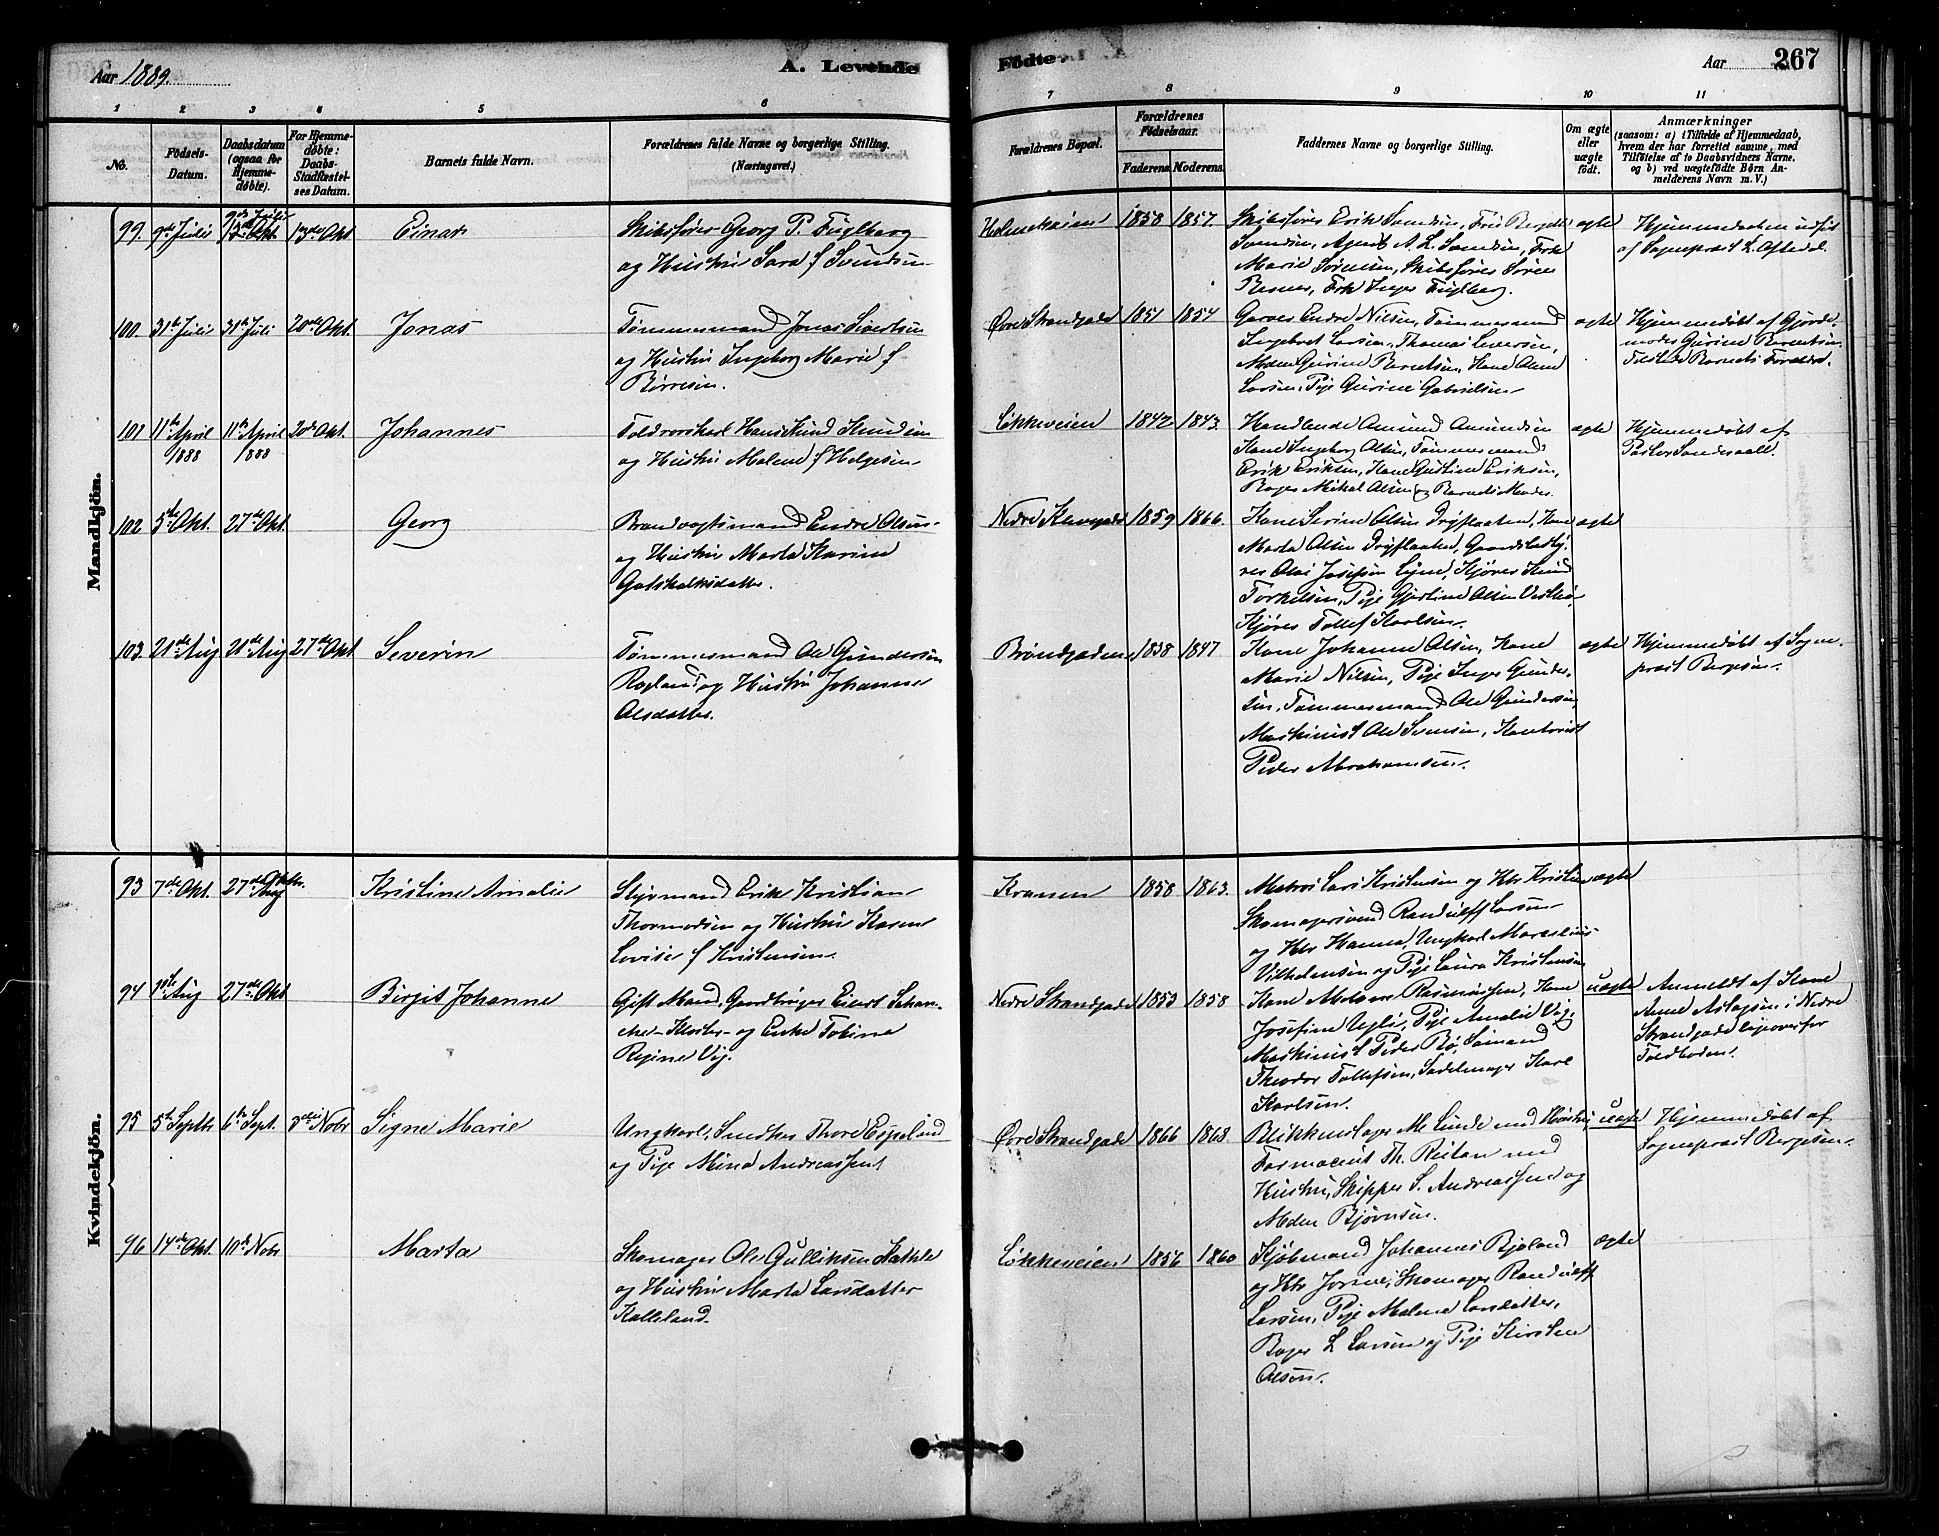 Aar 1889.
A. Levende
Fødte.
Aar
267
1 2 3 4 5 6 7 8 9 10 11
No.
Fødsels-Datum.
Daabsdatum (ogsaa for Hjemmedøbte).
For Hjemmedøbte: Daabs-Stadfæstelses Datum.
Barnets fulde Navn.
Forældrenes fulde Navne og borgerlige Stilling. (Næringsvei.)
Forældrenes Bopæl.
Forældrenes Fødselsaar.
Faderens. Moderens.
Faddernes Navne og borgerlige Stilling.
Om ægte eller uægte født.
Anmærkninger
(saasom: a) i Tilfælde af Hjemmedaab, hvem der har forrettet samme, med Tilføielse af to Daabsvidners Navne, og b) ved uægtefødte Børn Anmelderens Navn m. V.)
Mandkjøn.
99. 9de Juli 9de Juli 13de Okt 13de Okt Einar
Skibsfører Georg P. Fuglberg
og Hustru Sara f Svendsen
Holmekaien 1858 1857.
Skibsfører Erik Svendsen, Fru
Svendsen, Agent A. L. Svendsen, Frk
Marie Sørensen, Skibsfører Søren
Frk Inger Fuglberg.
ægte
Hjemmedaaben udført
af Sognepræst L. Oftedal.
100. 31te Juli 31te Juli 20de Okt Jonas
Tømmermand Jonas Sivertsen
og Hustru Ingeborg Marie f
Børresen.
Øvre Strandgade 1851 1854
Garver Endre Nilsen, Tømmermand
Ingebret Larsen, Thomas Iversen,
Mdm Gurine Berentsen, Kone Oline
Larsen, Pige Gurine Gabrielsen
ægte
Hjemmedøbt af Gjorde-
moder Gurine Berentsen.
Tilstede Barnets Forældre.
101 11te April 1888 11te April 1888 20de Okt. Johannes
Toldrorskarl Hans Knud Knudsen
og Hustru Malene f Helgesen
Løkkeveien 1842 1843.
Handlende Amund Amundsen
Kone Ingeborg Olsen, Tømmermand
Erik Eriksen, Kone Gurline Eriksen,
Bager Mikal Olsen og Barnets Moder.
ægte
Hjemmedøbt af
Pastor
102 5te Okt. 27de Okt. Georg
Brandvagtsmand Endre Olsen
og Hustru Marta Karine
Gotskalksdatter.
Nedre Klevegade 1859 1866.
Kone Serine Olsen Kone
Marta Olsen
Olai Josefsen Kjører Knud
Torkelsen, Pige Gjertine Olsen
Kjører Tollef Karlsen.
ægte
103. 21de Aug 21de Aug 27de Okt Severin
Tømmermand Ole Gundersen
Rogland og Hustru Johanne
Olsdatter.
Brøndgaden 1838 1847
Kone Johanne Olsen, Kone
Marie Nilsen, Pige Inger Gunder-
sen, Tømmermand Ole Gundersen,
Maskinist Ole Svensen, Kontorist
Peder Abrahamsen.
ægte
Hjemmedøbt af Sogne-
præst Børgesen.
Kvindekjøn.
93 7de Okt. 27de Aug Oktbr. Kristine Amalie
Styrmand Erik Kristian
Thormodsen og Hustru Karen
Lovise f Kristensen.
Kranen 1858 1863.
Matros Lars Kristensen og Htr Kristine
Skomagersvend Randulff Larsen
og Htr Hanna, Ungkarl Marselius
Vilhelmsen og Pige Laura Kristensen
ægte
94 1ste Aug 27de Okt Birgit Johanne
Gift Mand, Gaardbruger Eilert Johan-
nes Kloster og Enke Tobine
Regine Vig.
Nedre Strandgade 1853 1858
Kone Rasmussen, Kone
Josefine Pige Amalie Vig,
Maskinist Peder Bø, Sømand
Theodor Tollefsen, Sadelmager Karl
Karlsen.
uægte
Anmeldt af Kone
Anne Aslagsen i Nedre
Strandgade ligeoverfor
Toldboden.
95 5te Septbr. 6te Sept. 3die Nobr Signe Marie
Ungkarl, Snedker Thore Espeland
og Pige Mina Andreassen
Øvre Strandgade 1866 1868
Blikkenslager M. Lunde med Hustru,
Farmaceut Th. Reitan med
Hustru, Skipper S. Andreassen og
Mdm Bjørnsen.
uægte
Hjemmedøbt af
Sognepræst Børgesen.
96 14de Okt. 10de Nobr Marta
Skomager Ole Gulliksen
og Hustru Marta Larsdatter
Kalleland.
Løkkeveien 1856 1860
Kjøbmand Johannes Bjeland
og Htr Jorine, Skomager Randulff
Larsen, Pige Malene Larsdatter,
Bager L Larsen og Pige Kirsten
Olsen.
ægte